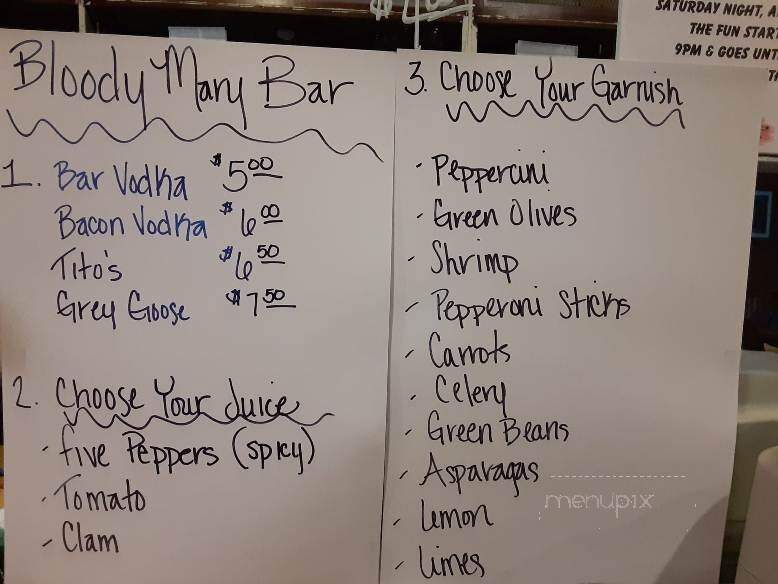 Bloody Mary Bar
1. Bar Vodka $5.00
Bacon Vodka $6.00
Tito's $6.50
Grey Goose $7.50
2. Choose Your Juice
- five Peppers (spicy)
- Tomato
- Clam
3. Choose Your Garnish
- Peppercini
- Green Olives
- Shrimp
- Pepperoni Sticks
- Carrots
- Celery
- Green Beans
- Asparagas
- Lemon
- Limes
SATURDAY NIGHT, A
THE FUN START
9PM & GOES UNT
menupix